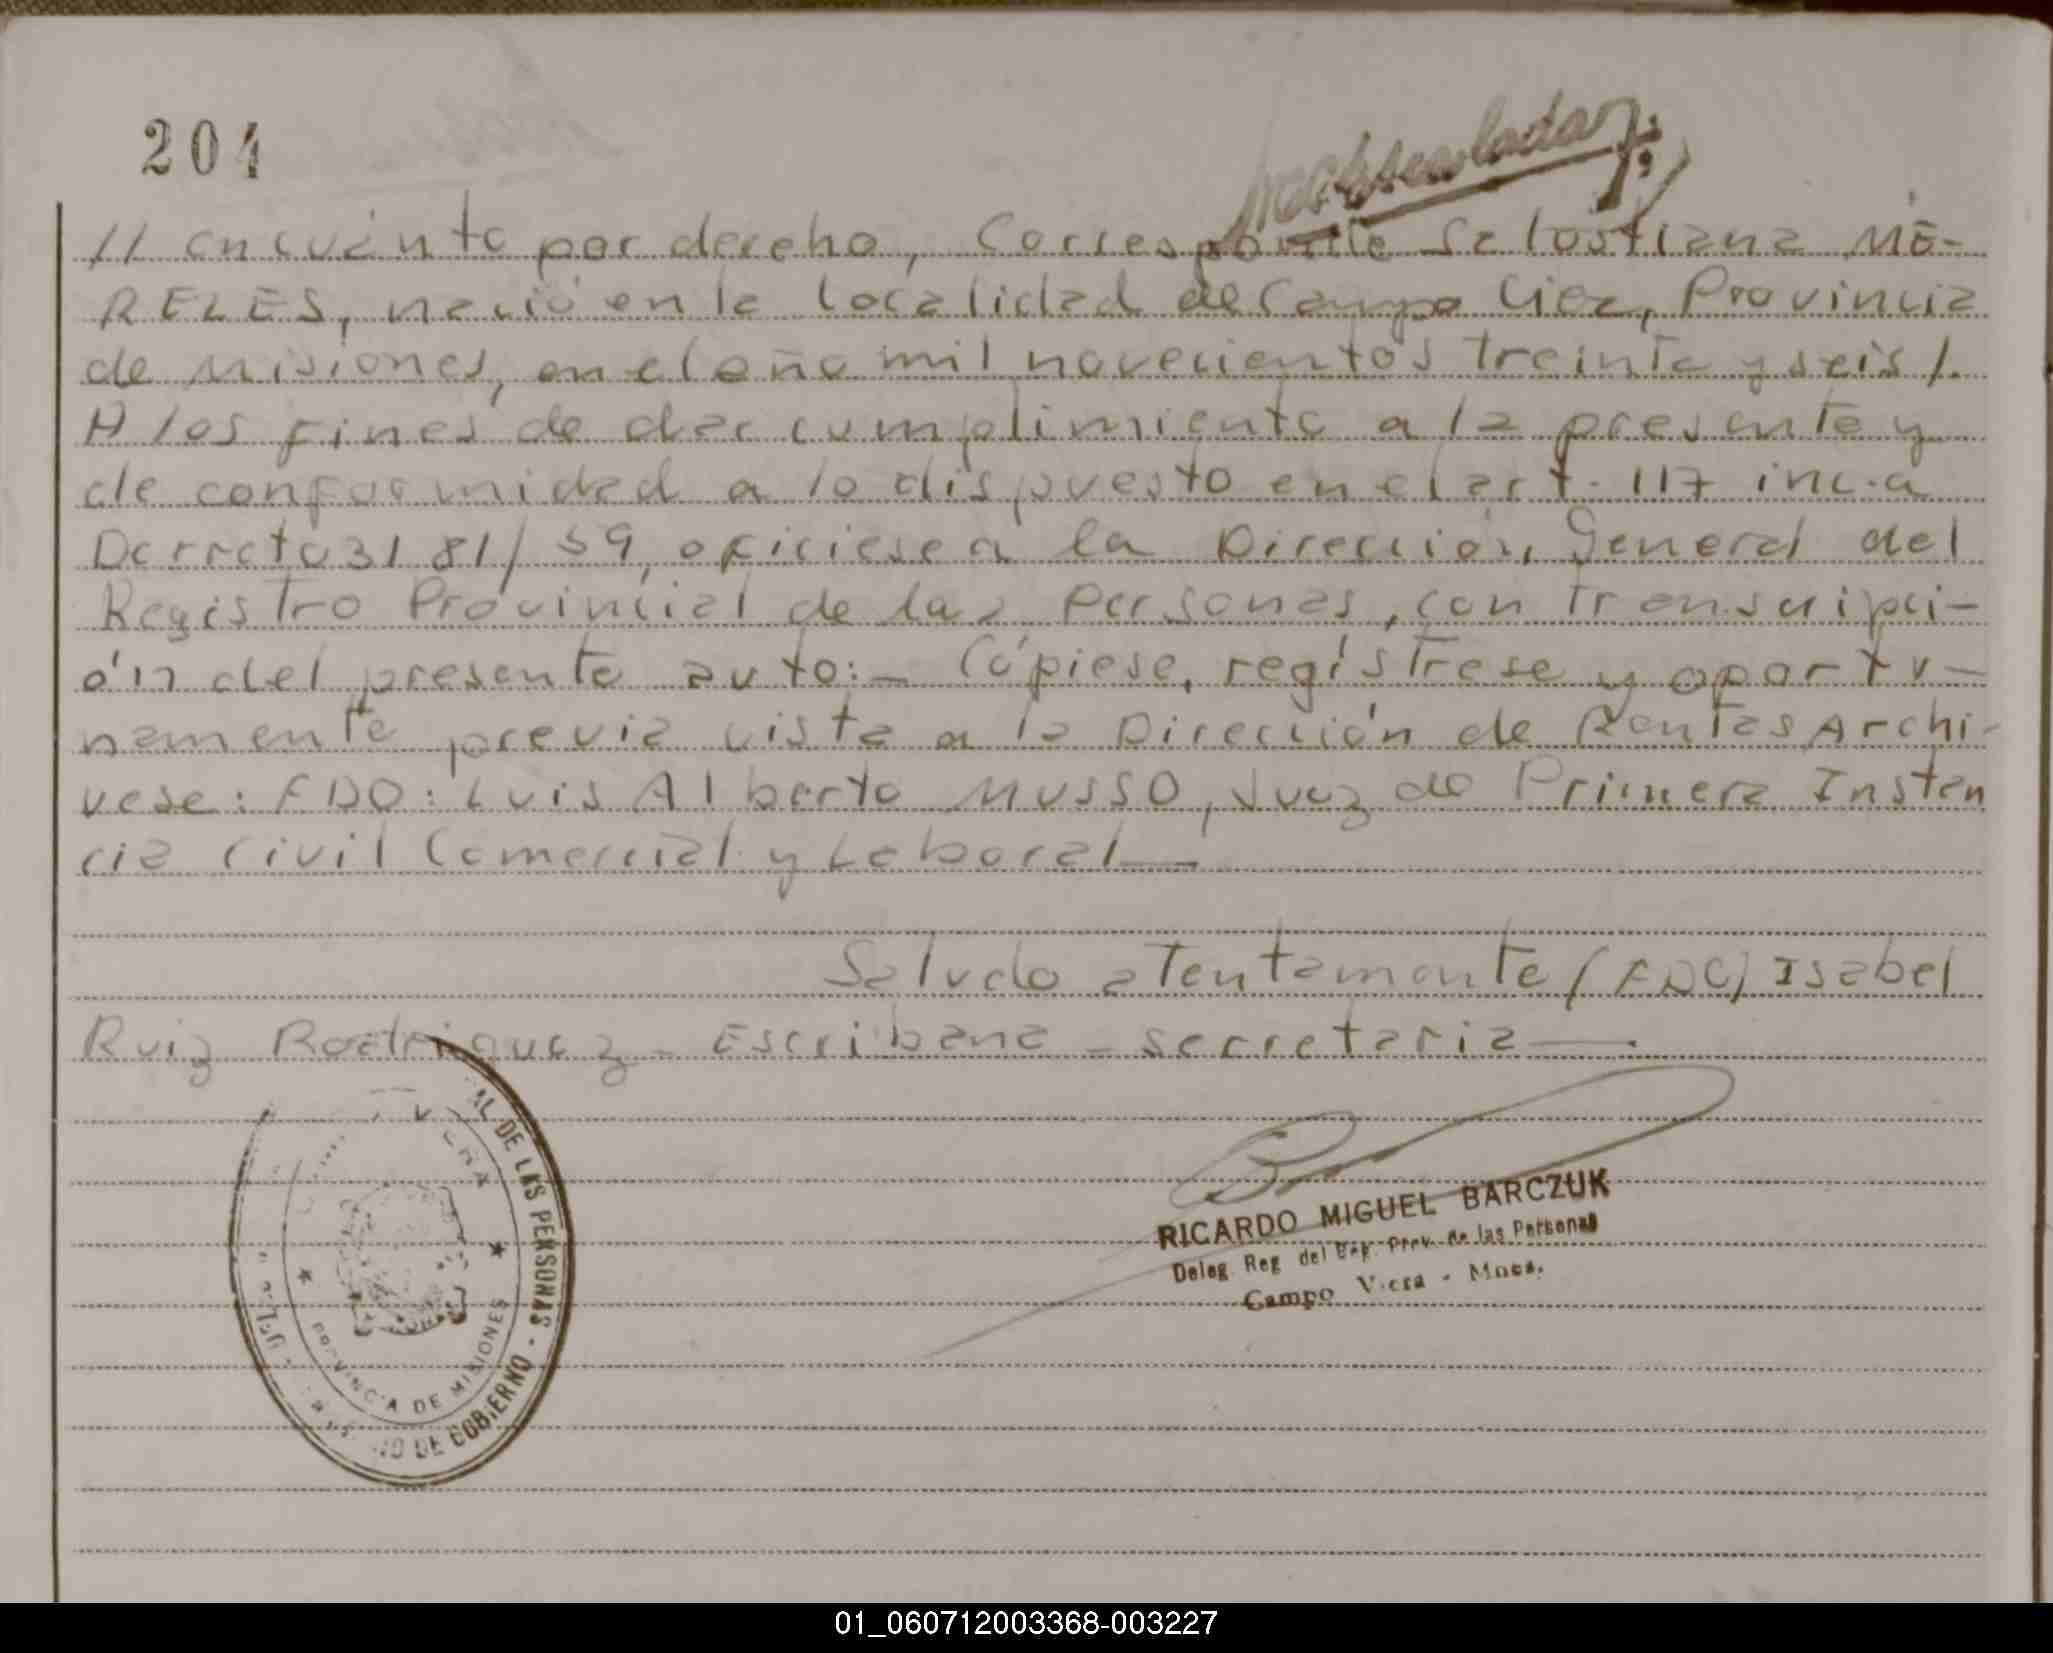 204
// en cuanto por derecho, Corresponde Salostiana ME-
RELES, nació en la localidad de Campo Viera, Provincia
de Misiones, en el año mil novecientos treinta y seis /.
A los fines de dar cumplimiento a la presente y
de conformidad a lo dispuesto en el art. 117 inc. a
Decreto 3181/59, oficiese a la Dirección, General del
Registro Provincial de las Personas, con transcripci-
ón del presente auto:- Cópiese, regístrese y oportu-
namente previa vista a la Dirección de Rentas Archi-
vese: FDO: Luis Alberto MUSSO, Juez de Primera Instan
cia Civil Comercial y Laboral—
Saludo atentamente (FDO) Isabel
Ruiz Rodriguez - Escribana - secretaria —.
AL DE LAS PERSONAS - 
IO DE GOBIERNO
PROVINCIA DE MISIONES
RICARDO MIGUEL BARCZUK
Deleg. Reg. del Reg. Prov. de las Personas
Campo Viera - Mnes.
01_060712003368-003227